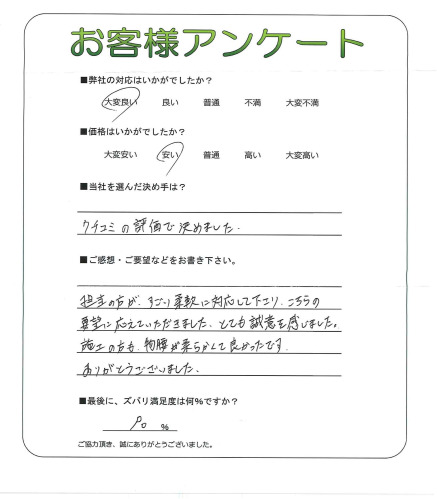 お客様アンケート
■弊社の対応はいかがでしたか？
大変良い 良い 普通 不満 大変不満
■価格はいかがでしたか？
大変安い 安い 普通 高い 大変高い
■当社を選んだ決め手は？
クチコミの評価で決めました.
■ご感想・ご要望などをお書き下さい。
担当の方が、すごい柔軟に対応して下さり、こちらの
要望に応えていただきました、とても誠意を感じました。
施工の方も、物腰が柔らかくて良かったです.
ありがとうございました.
■最後に、ズバリ満足度は何％ですか？
90 %
ご協力頂き、誠にありがとうございました。